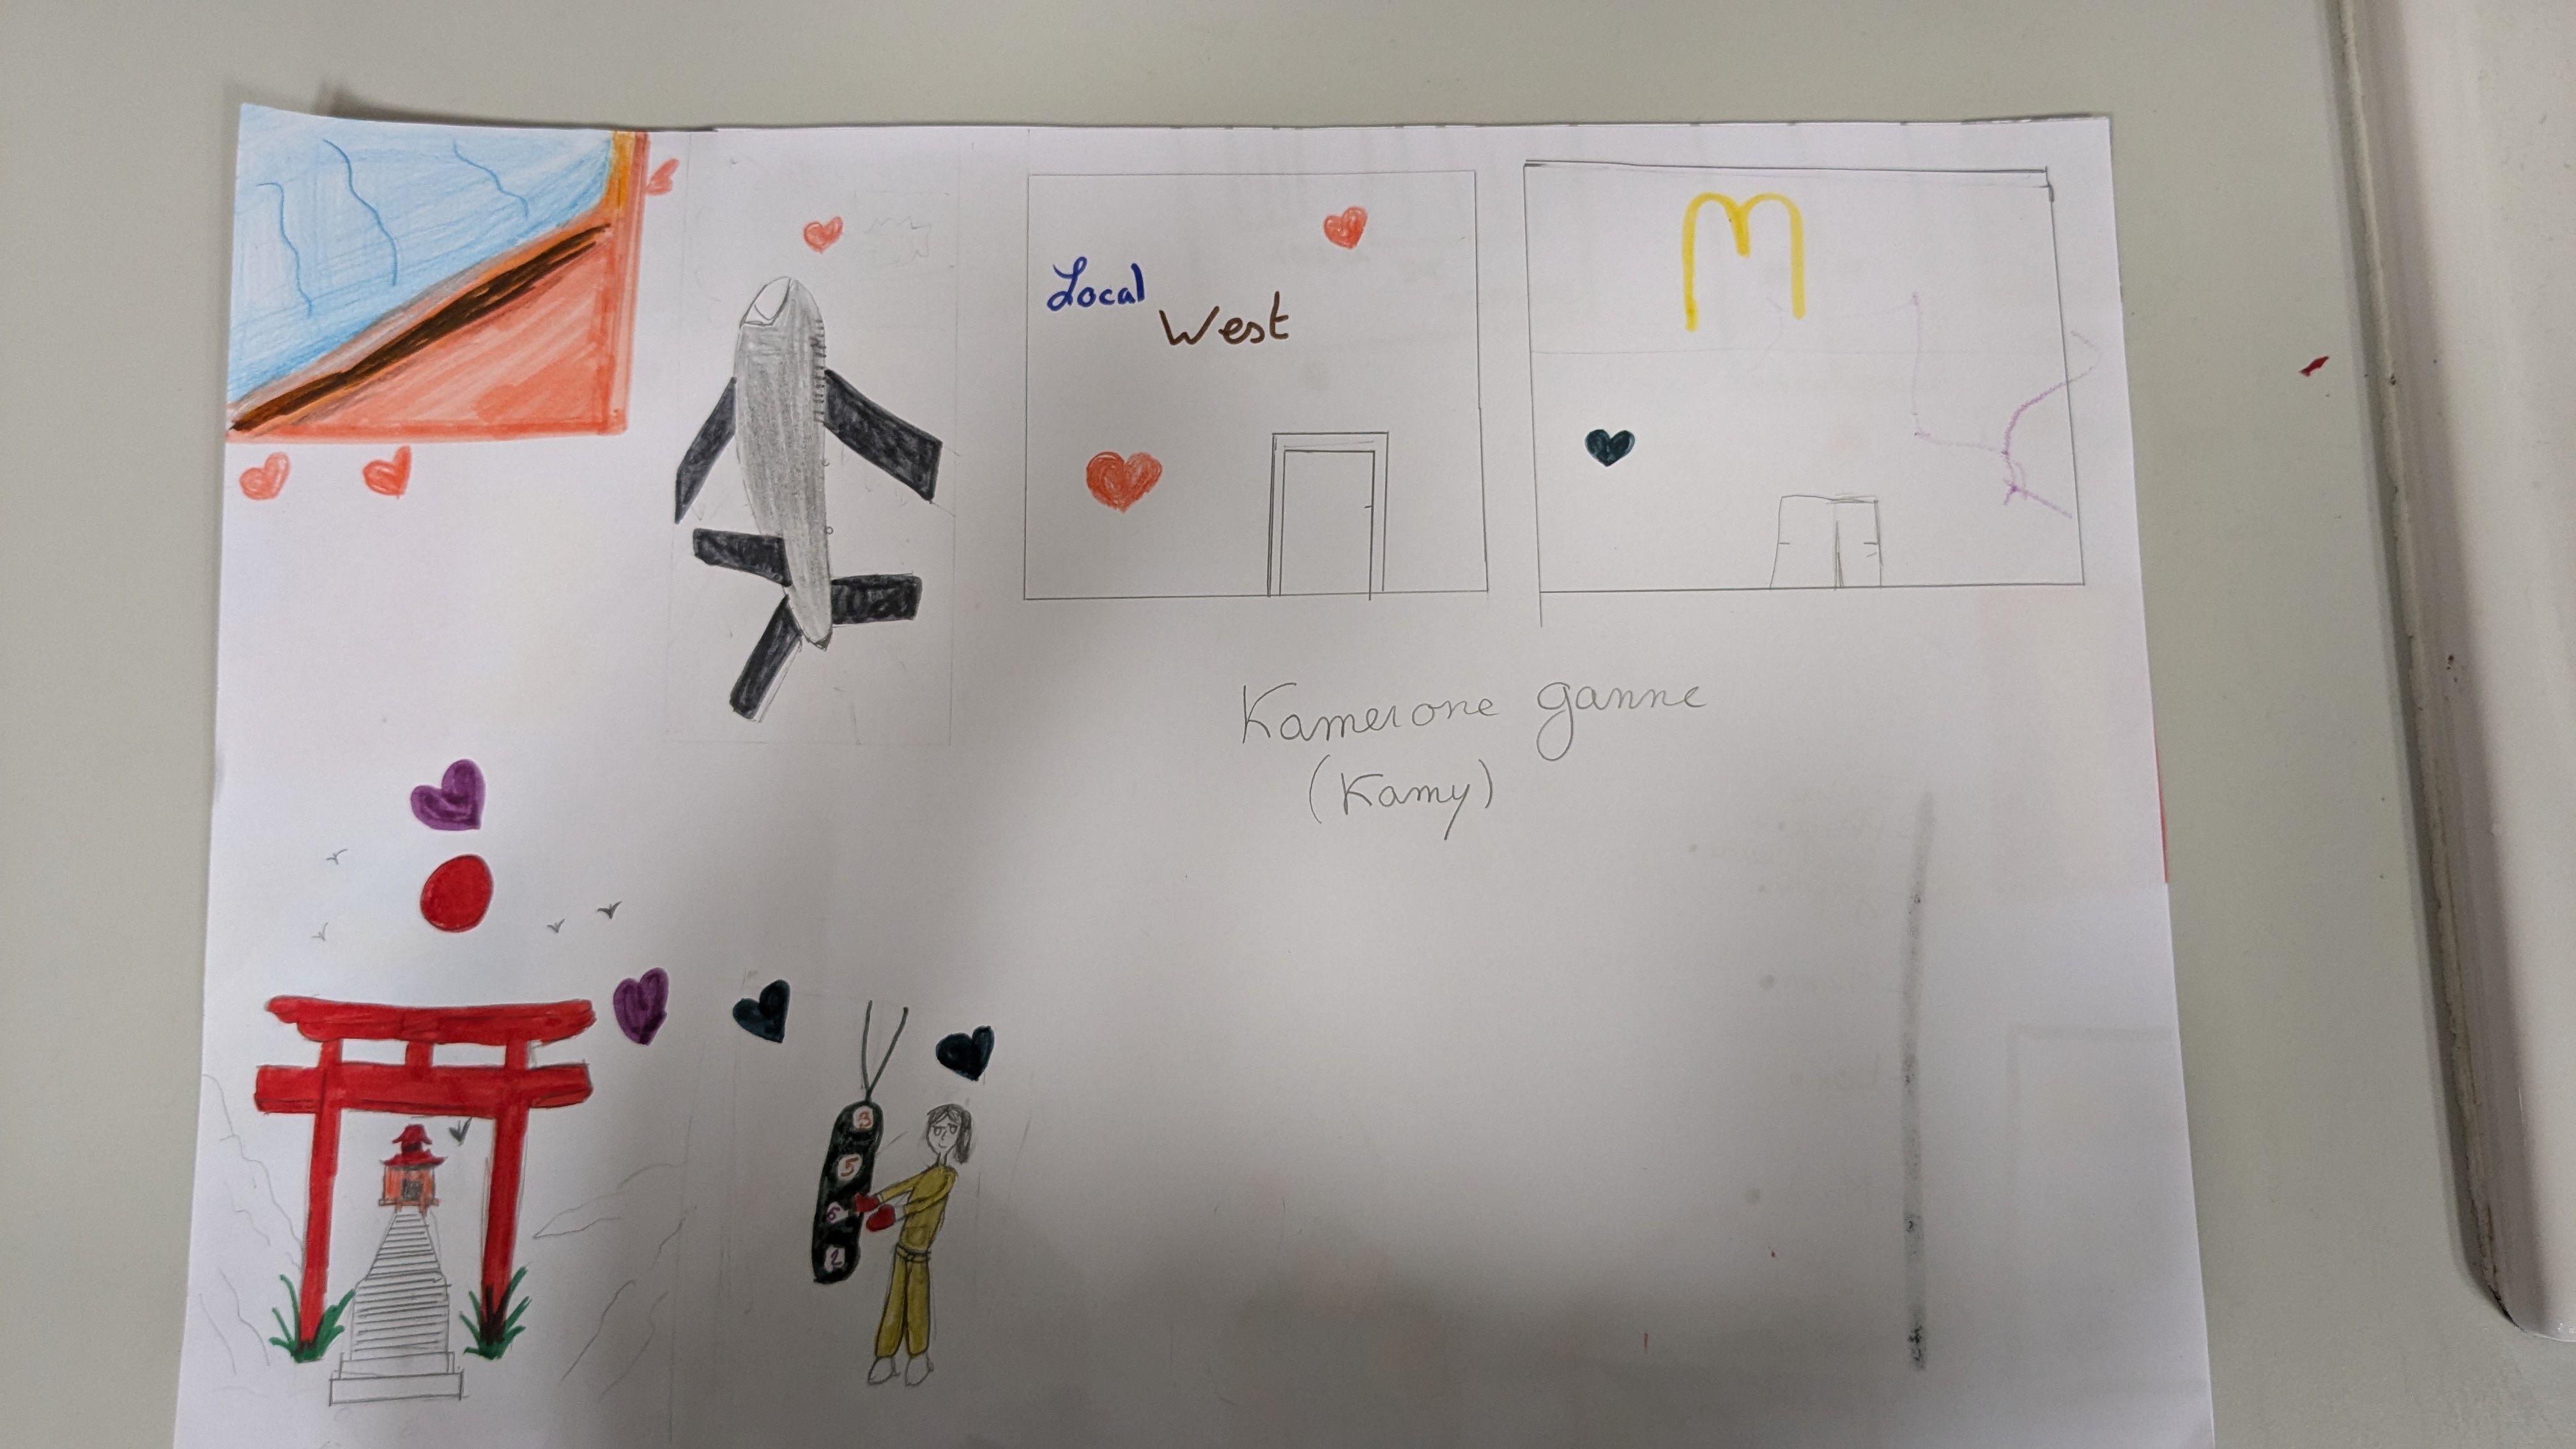 Local
West
M
Kamerone ganne
(Kamy)
3
5
6
2